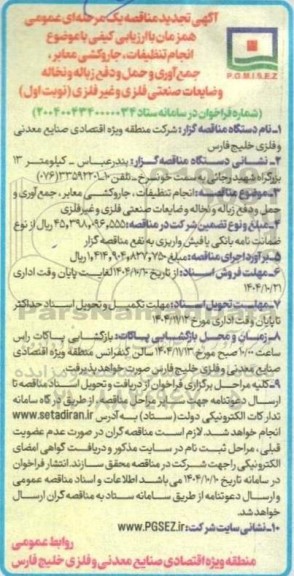 آگهی تجدید مناقصه یک مرحله‌ای عمومی
همزمان با ارزیابی کیفی با موضوع
انجام تنظیفات، جاروکشی معابر،
جمع‌آوری و حمل و دفع زباله و نخاله
و ضایعات صنعتی فلزی و غیر فلزی (نوبت اول)
P.G.M.I.S.E.Z
(شماره فراخوان در سامانه ستاد ۲۰۰۴۰۰۴۳۴۰۰۰۰۰۳۴)
۱-نام دستگاه مناقصه گزار: شرکت منطقه ویژه اقتصادی صنایع معدنی
و فلزی خلیج فارس
۲- نشانی دستگاه مناقصه گزار: بندرعباس - کیلومتر ۱۳
بزرگراه شهید رجایی به سمت خونسرخ-تلفن ۱۰-۳۳۵۹۲۲۰۱(۰۷۶)
۳-موضوع مناقصه: انجام تنظیفات، جاروکشی معابر، جمع‌آوری و
حمل و دفع زباله و نخاله و ضایعات صنعتی فلزی و غیرفلزی
۴-مبلغ و نوع تضمین شرکت در مناقصه: ۴۵,۳۹۸,۰۹۶,۵۵۵ ریال از نوع
ضمانت نامه بانکی یا فیش واریزی به نفع مناقصه گزار
۵-برآورد اجرای مناقصه: مبلغ ۱,۴۱۴,۹۰۴,۸۲۷,۷۵۰ ریال
۶-مهلت فروش اسناد: از تاریخ ۱۴۰۴/۱۰/۱۰ لغایت پایان وقت اداری
۱۴۰۴/۱۰/۲۱
۷-مهلت تحویل اسناد: مهلت تکمیل و تحویل اسناد حداکثر
تا پایان وقت اداری مورخ ۱۴۰۴/۱۱/۱۲
۸-زمان و محل بازگشایی پاکات: بازگشایی پاکات راس
ساعت ۱۰:۰۰ صبح مورخ ۱۴۰۴/۱۱/۱۳ سالن کنفرانس منطقه ویژه اقتصادی
صنایع معدنی و فلزی خلیج فارس صورت خواهد پذیرفت.
۹-کلیه مراحل برگزاری فراخوان از دریافت و تحویل اسناد مناقصه تا
ارسال دعوتنامه جهت سایر مراحل مناقصه از طریق درگاه سامانه
تدارکات الکترونیکی دولت (ستاد) به آدرس www.setadiran.ir
انجام خواهد شد. لازم است مناقصه گران در صورت عدم عضویت
قبلی، مراحل ثبت نام در سایت مذکور و دریافت گواهی امضای
الکترونیکی را جهت شرکت در مناقصه محقق سازند. انتشار فراخوان
در سامانه تاریخ ۱۴۰۴/۱۰/۱۰ می باشد. اطلاعات و اسناد مناقصه عمومی
و ارسال دعوتنامه از طریق سامانه ستاد به مناقصه گران ارسال
خواهد شد.
۱۰-نشانی سایت شرکت: www.PGSEZ.ir
روابط عمومی
منطقه ویژه اقتصادی صنایع معدنی و فلزی خلیج فارس